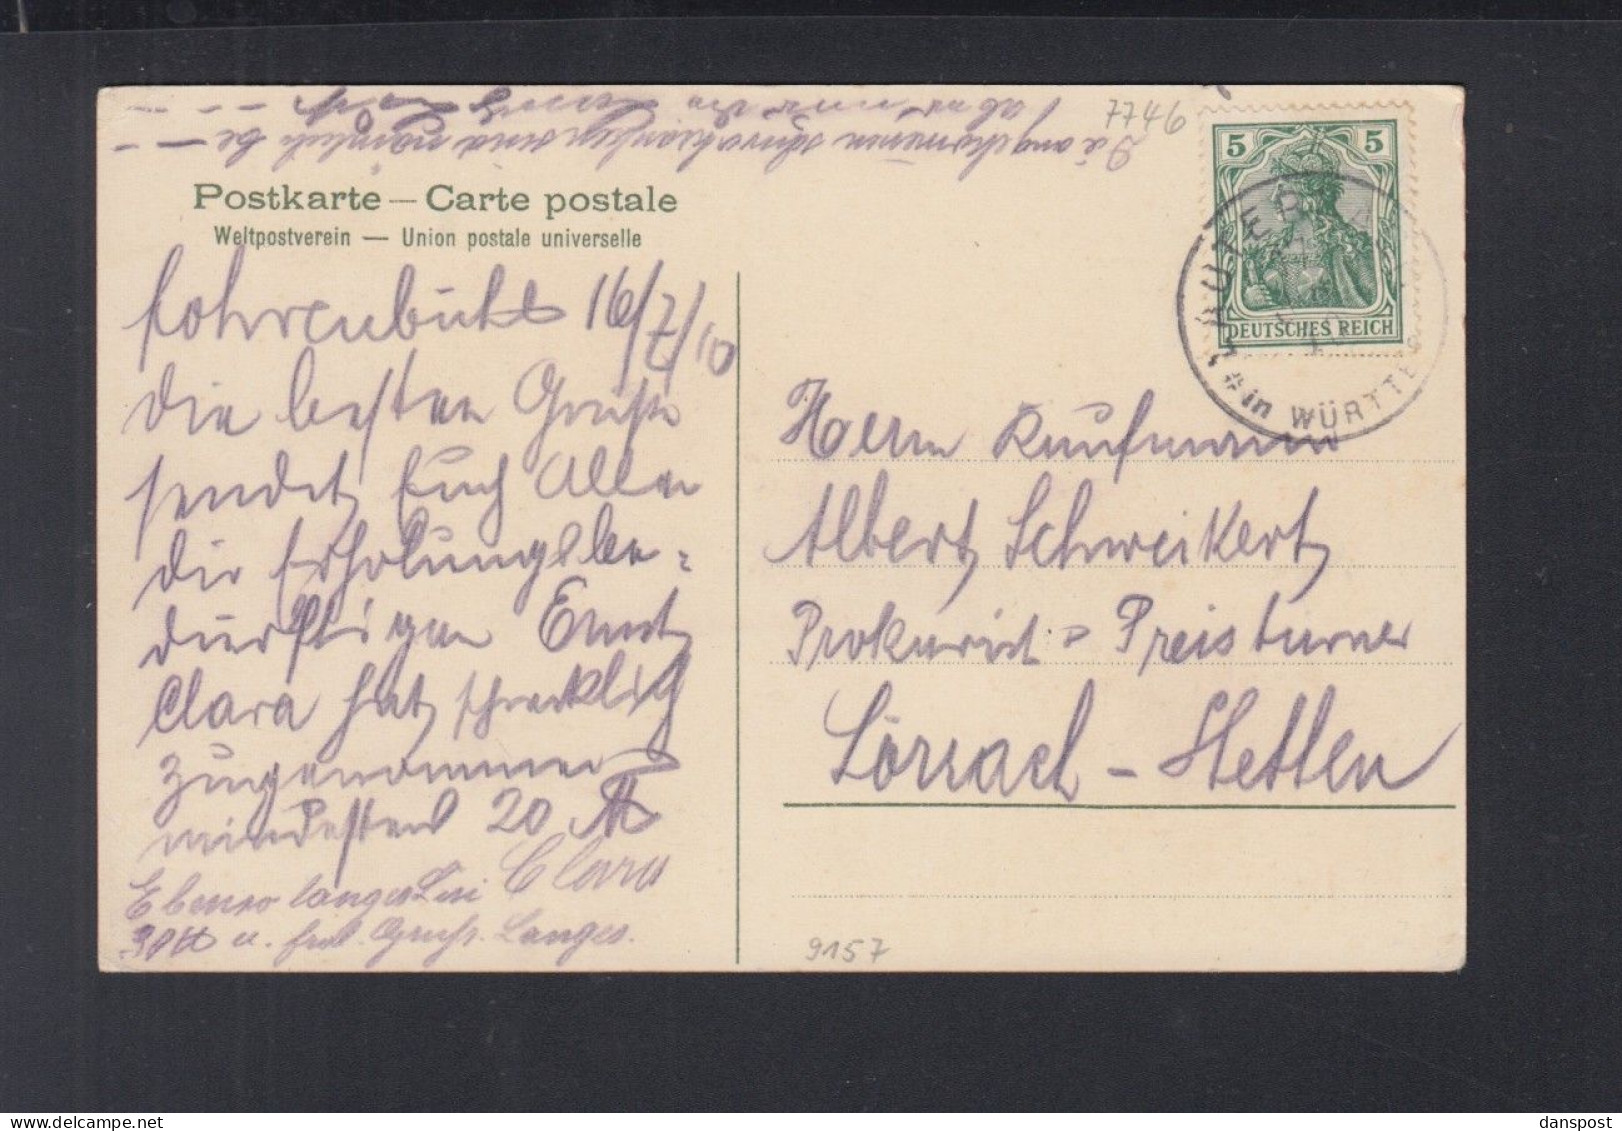 7746
Postkarte — Carte postale
Weltpostverein — Union postale universelle
5 5
DEUTSCHES REICH
in WÜRTTE
Fohrenbühl 16/7/10
Die besten Grüße
sendet Euch Allen
die Erholungsbe-
dürftigen Ernst
Clara hat schrecklich
zugenommen
mindestens 20 ℔
Clara
Ebenso
30 ℔ u. Gruß
Herrn Kaufmann
Albert Schweikert
Prokurist Preisturner
Lörrach - Stetten
9157
danspost